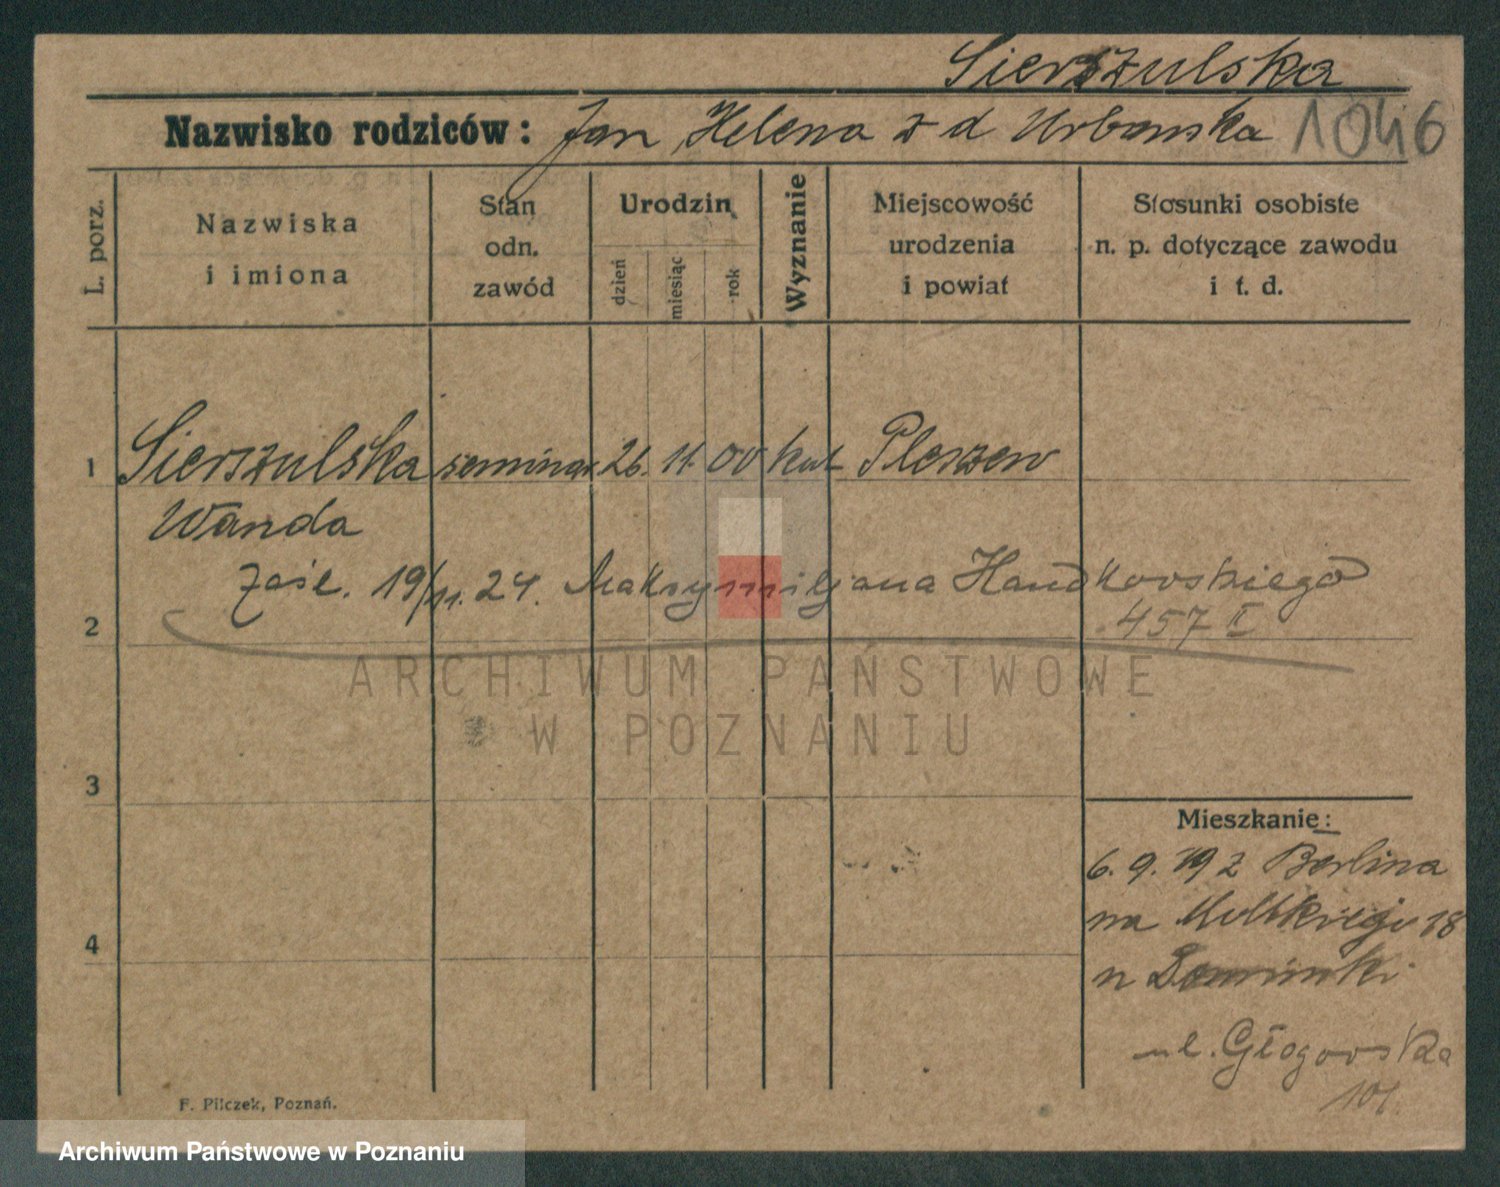 Sierszulska
Nazwisko rodziców: Jan Helena z d Urbanska 1046
L. porz.
Nazwiska i imiona
Stan odn. zawód
Urodzin
dzień
miesiąc
rok
Wyznanie
Miejscowość urodzenia i powiat
Stosunki osobiste n. p. dotyczące zawodu i t. d.
1 Sierszulska seminar. 26. 11. 00 kat Pleszew
Wanda
zaśl. 19/11. 24. Maksymiljana Handkowskiego
457 II
2
ARCHIWUM PAŃSTWOWE
W POZNANIU
3
Mieszkanie:
6. 9. 19 z Berlina
na Moltkiego 18
4
n
ul. Głogowska
101.
F. Pilczek, Poznań.
Archiwum Państwowe w Poznaniu